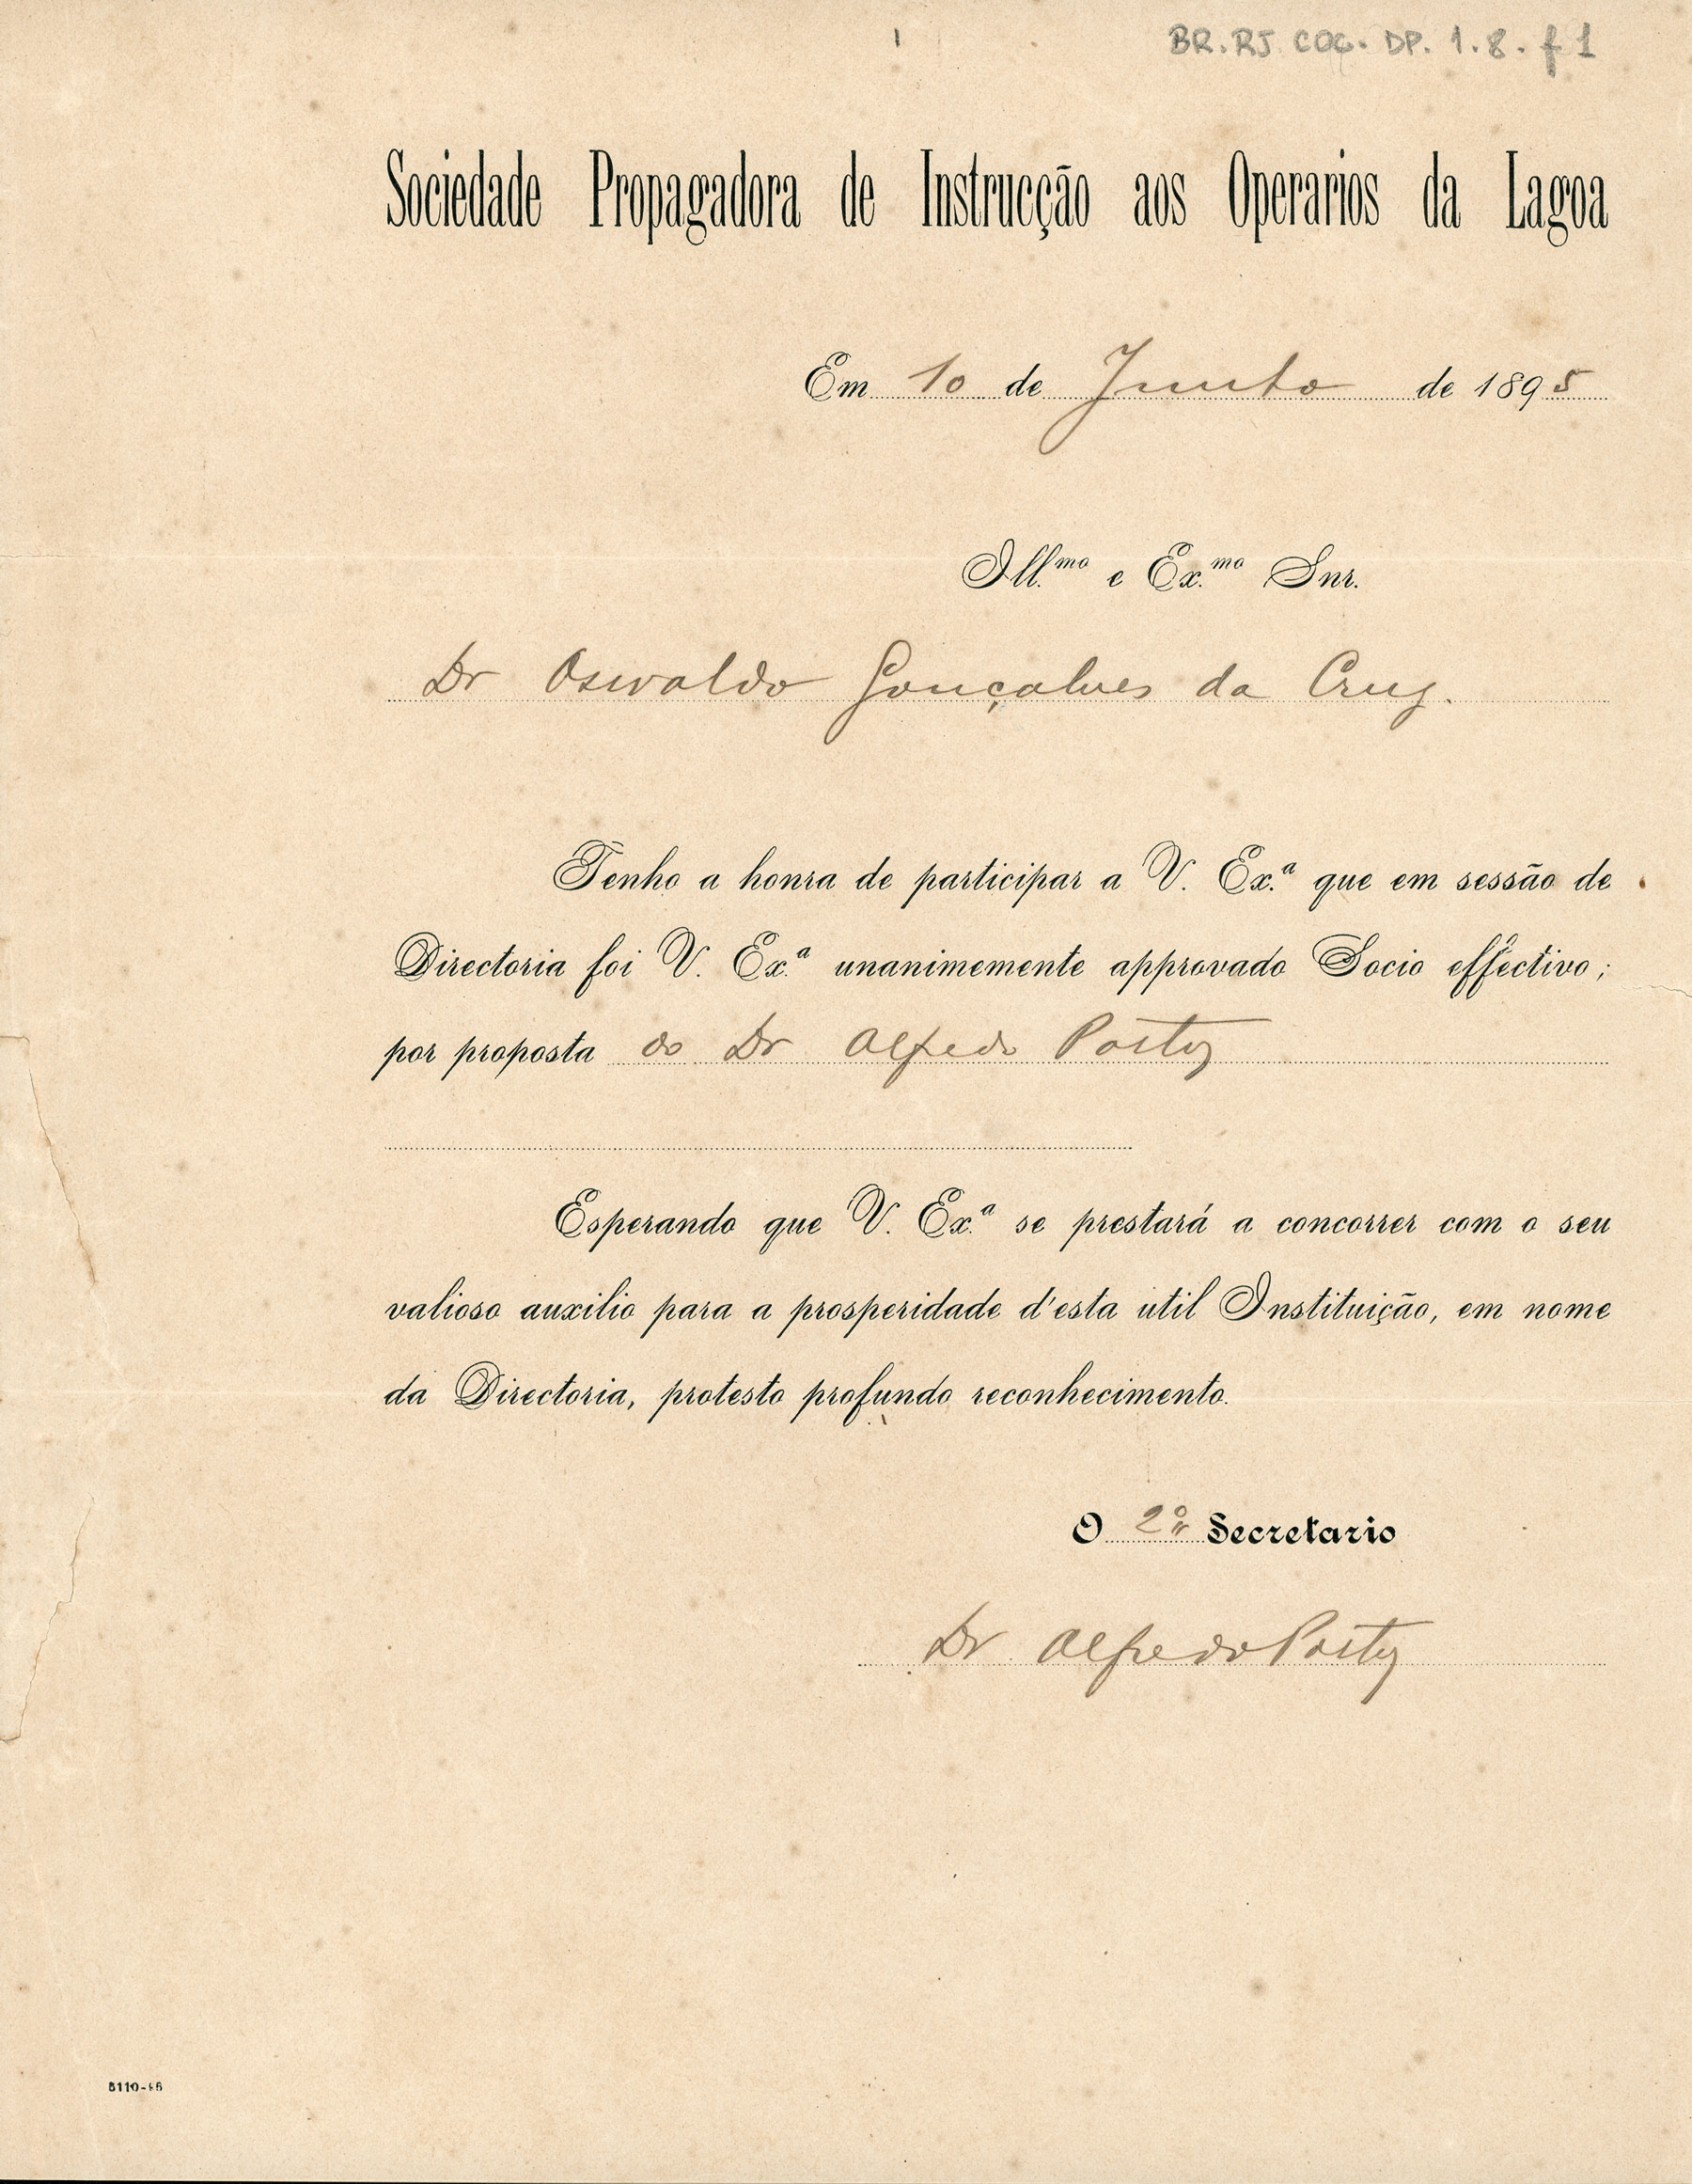 BR.RJ COC. DP. 1.8. f 1
Sociedade Propagadora de Instrucção aos Operarios da Lagoa
Em 10 de Junho de 1895
Ill.mo e Ex.mo Snr.
Dr Oswaldo Gonçalves da Cruz.
Tenho a honra de participar a V. Ex.ª que em sessão de
Directoria foi V. Ex.ª unanimemente approvado Socio effectivo;
por proposta do Dr Alfredo Porto
Esperando que V. Ex.ª se prestará a concorrer com o seu
valioso auxilio para a prosperidade d'esta util Instituição, em nome
da Directoria, protesto profundo reconhecimento.
O 2º Secretario
Dr Alfredo Porto